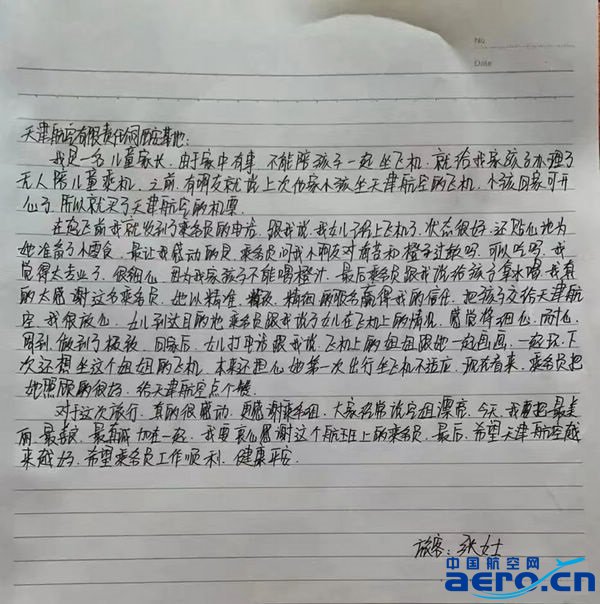 No
Date
天津航空有限责任公司西安基地:
我是一名儿童家长,由于家中有事,不能陪孩子一起坐飞机,就给我家孩子办理了
无人陪儿童乘机,之前,有朋友就说上次他家小孩坐天津航空的飞机,小孩回家可开
心了,所以就买了天津航空的机票.
在起飞前我就收到了乘务员的电话,跟我说,我女儿已上飞机了,状态很好,还贴心地为
她准备了小零食,最让我感动的是,乘务员问我小朋友对苹果和橙子过敏吗,可以吃吗,我
觉得太专业了,很细心,因为我家孩子不能喝橙汁,最后乘务员跟我说给孩子拿水喝,我真
的太感谢这名乘务员,她以精准、精致、精细的服务赢得我的信任,把孩子交给天津航
空,我很放心,女儿到达目的地,乘务员跟我说了女儿在飞机上的情况,感觉特细心、耐心、
周到,做到了极致,回家后,女儿打电话跟我说,飞机上的姐姐跟她一起画画,一起玩,下
次还想坐这个姐姐的飞机,本来还担心她第一次出行坐飞机不适应,现在看来,乘务员把
她照顾的很好,给天津航空点个赞
对于这次旅行,真的很感动,更感谢乘务组,大家经常说空姐漂亮,今天,我要把最美
丽、最善良、最真诚加在一起,我要衷心感谢这个航班上的乘务员,最后,希望天津航空越
来越好,希望乘务员工作顺利,健康平安.
旅客:张女士
中国航空网
aero.cn